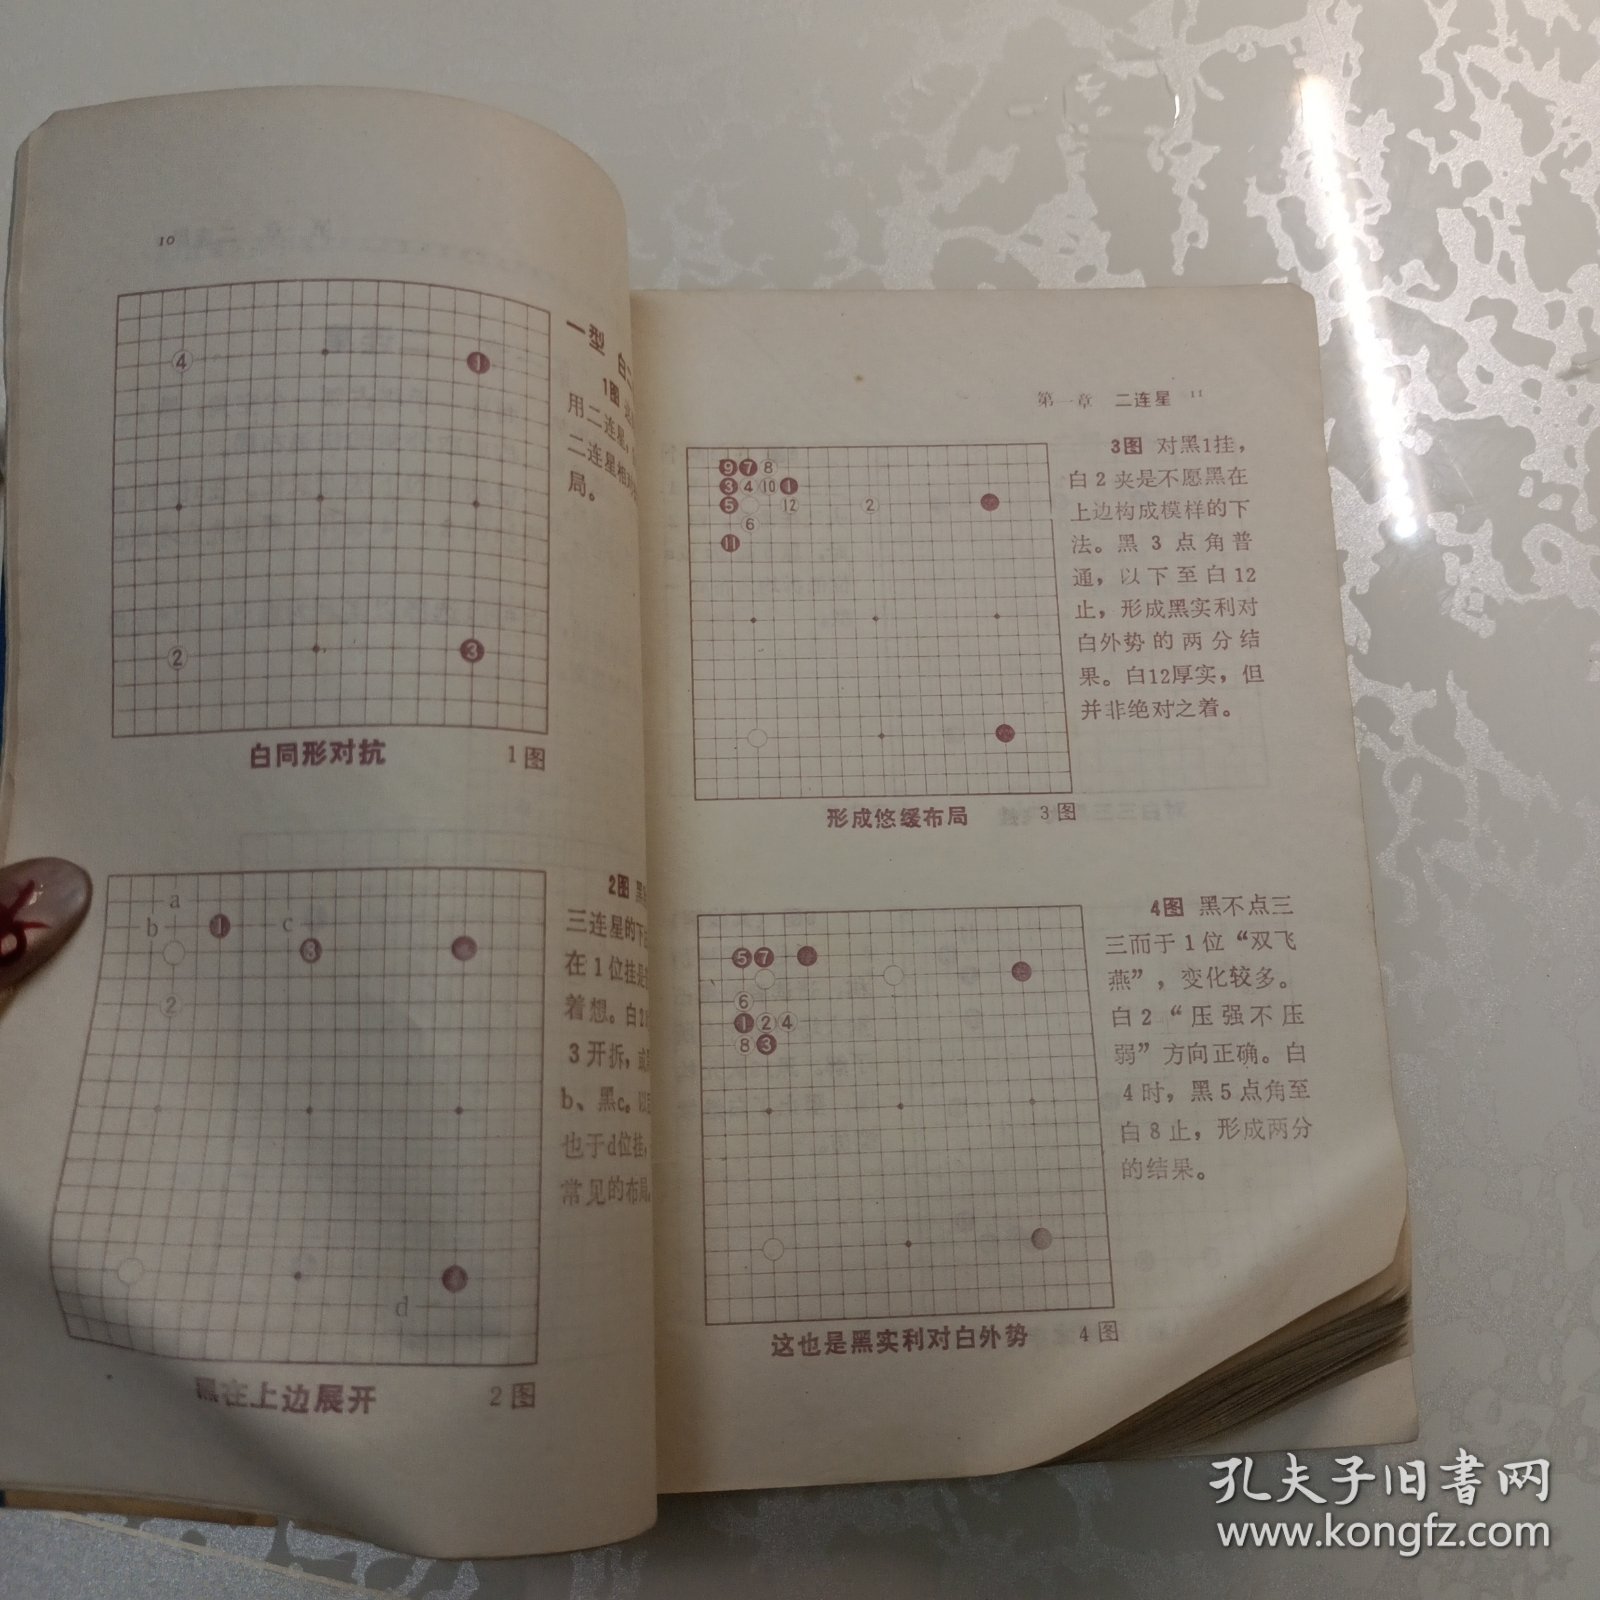 10
一型 白二
1图
用二连星，
二连星相对
局。
④
❶
②
❸
白同形对抗 1图
2图 黑
三连星的下
在1位挂是
着想。白2
3开拆，或
b、黑c。以
也于d位挂，
常见的布局。
a
b ❶ c
❸
②
d
黑在上边展开 2图
第一章 二连星 11
3图 对黑1挂，
白2夹是不愿黑在
上边构成模样的下
法。黑3点角普
通，以下至白12
止，形成黑实利对
白外势的两分结
果。白12厚实，但
并非绝对之着。
❾❼⑧
❸④⑩❶
❺⑫②
⑥
⓫
形成悠缓布局 3图
4图 黑不点三
三而于1位“双飞
燕”，变化较多。
白2“压强不压
弱”方向正确。白
4时，黑5点角至
白8止，形成两分
的结果。
❺❼
⑥
❶②④
⑧❸
这也是黑实利对白外势 4图
孔夫子旧书网
www.kongfz.com